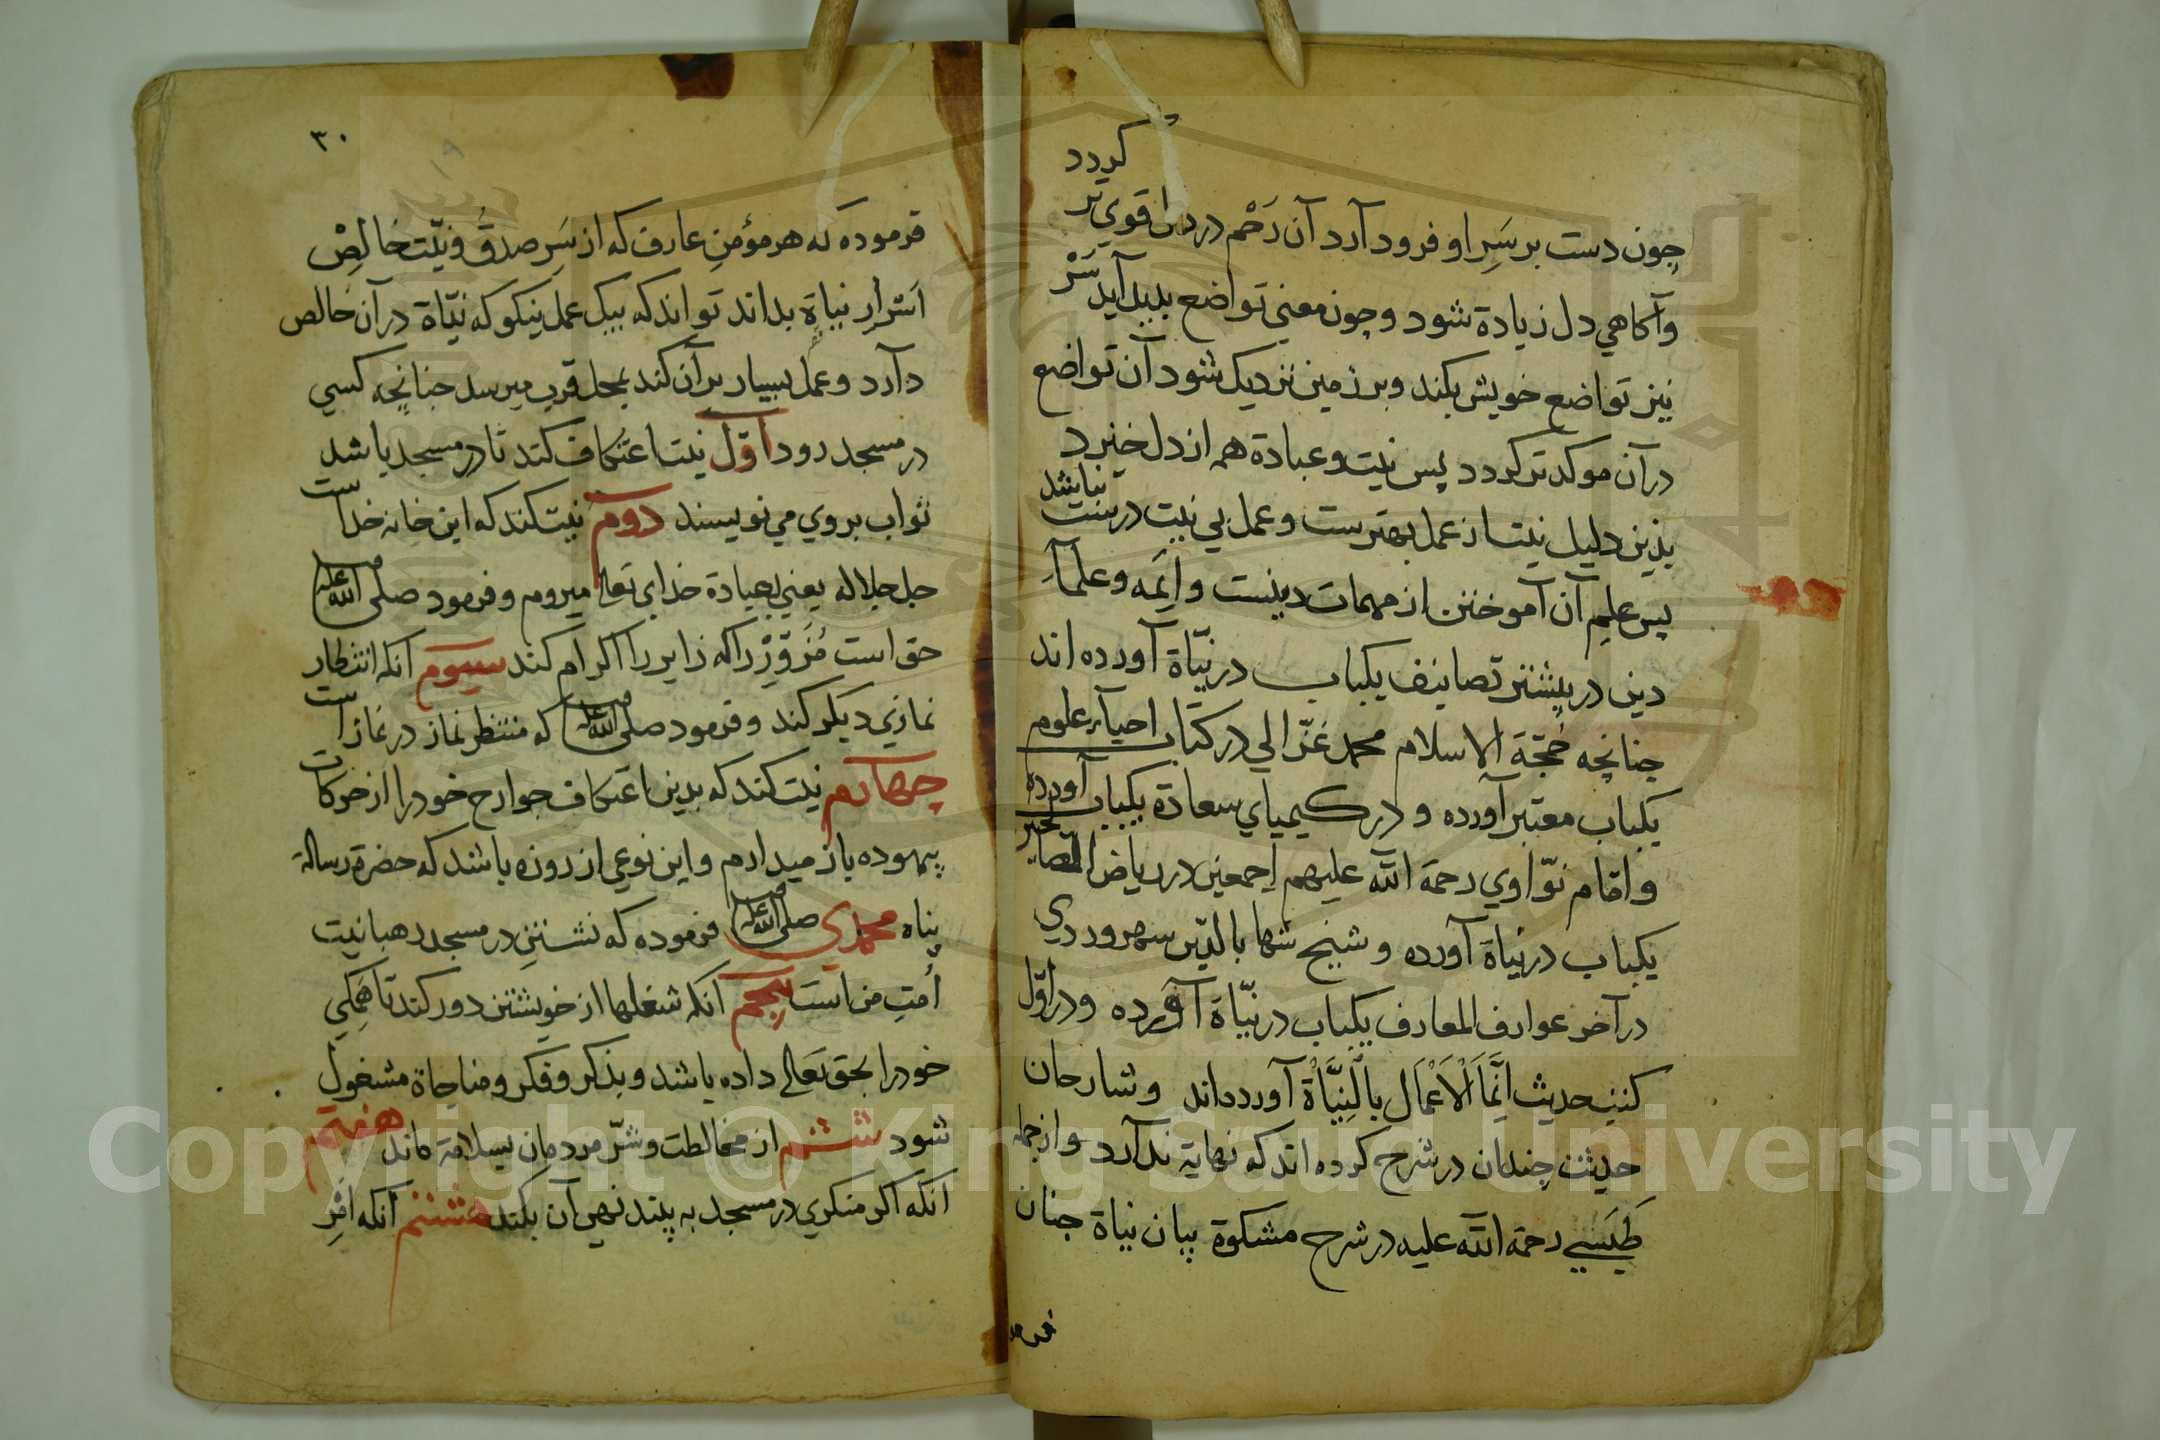 چون دست بر سَرِ او فرود آرد آن رَحْم در دل قوي تر گردد
وآكاهي دل زيادة شود و چون معني تواضع بديد آيد سَرْ
نيز تواضع خويش بكند و بر زمين نزديك شود آن تواضع
در آن موكد تر گردد پس نيت وعبادة همه از دل خيزد
بذين دليل نيت از عمل بهترست و عمل بي نيت درست نباشد
پس علمِ آن آموختن از مهمات دينست و ايمه و علمآءِ
دين در بيشتر تصانيف يكباب در نيّاة آورده اند
چنانچه حُجّة الاسلام محمد غزّالي در كتاب احياء علوم
يكباب معتبر آورده و در كيمياي سعادة يكباب آورده
و امام نوّاوي رحمة الله عليهم اجمعين در رياض الصالحين
يكباب در نياة آورده و شيخ شهاب الدّين سهروردي
در آخر عوارف المعارف يكباب در نيّاة آورده و در اوّل
كتب حديث اِنَّمَا الْاَعْمَال بِالْنِيَّاة آورده اند و شارحان
حديث چندان در شرح كرده اند كه نهاية ندارد و از جمله
طَيَبي رحمة الله عليه در شرح مشكوة بيان نياة چنان
فرمو
٣٠
فرموده كه هر مؤمنِ عارف كه از سَرِ صدق و نيّت خالِصْ
اَسْرارِ نياة بداند تواند كه بيك عمل نيكو كه نيّاة در آن خالص
دارد و عمل بسيار بر آن كند بمحل قرب ميرسد چنانچه كسي
در مسجد رود اوّل نيت اعتكاف كند تا در مسجد باشد
ثواب بروي مي نويسند دوم نيت كند كه اين خانه خداست
جل جلاله يعني بعبادة خداي تعالي ميروم و فرمود صلى الله عليه
حق است مُزَوِّرْ را كه زاير را اكرام كند سيوم انكه انتظار
نمازي ديكر كند و فرمود صلى الله عليه كه منتظر نماز در نماز است
چهارم نيت كند كه بدين اعتكاف جوارح خود را از حركات
بيهوده باز ميدارم و اين نوعي از روزه باشد كه حضرة رسالة
پناه محمدي صلى الله عليه فرموده كه نشستنِ در مسجد رهبانيت
اُمتِ من است پنجم انكه شغلها از خويشتن دور كند تا هَمِكي
خود را بحق تعالي داده باشد و بذكر و فكر و مناجاة مشغول
شود ششم از مخالطت و شرّ مردمان بسلامة ماند هفتم
انكه اكر منكري در مسجد به بيند نهي آن بكند هشتم انكه امْرِ
Copyright © King Saud University